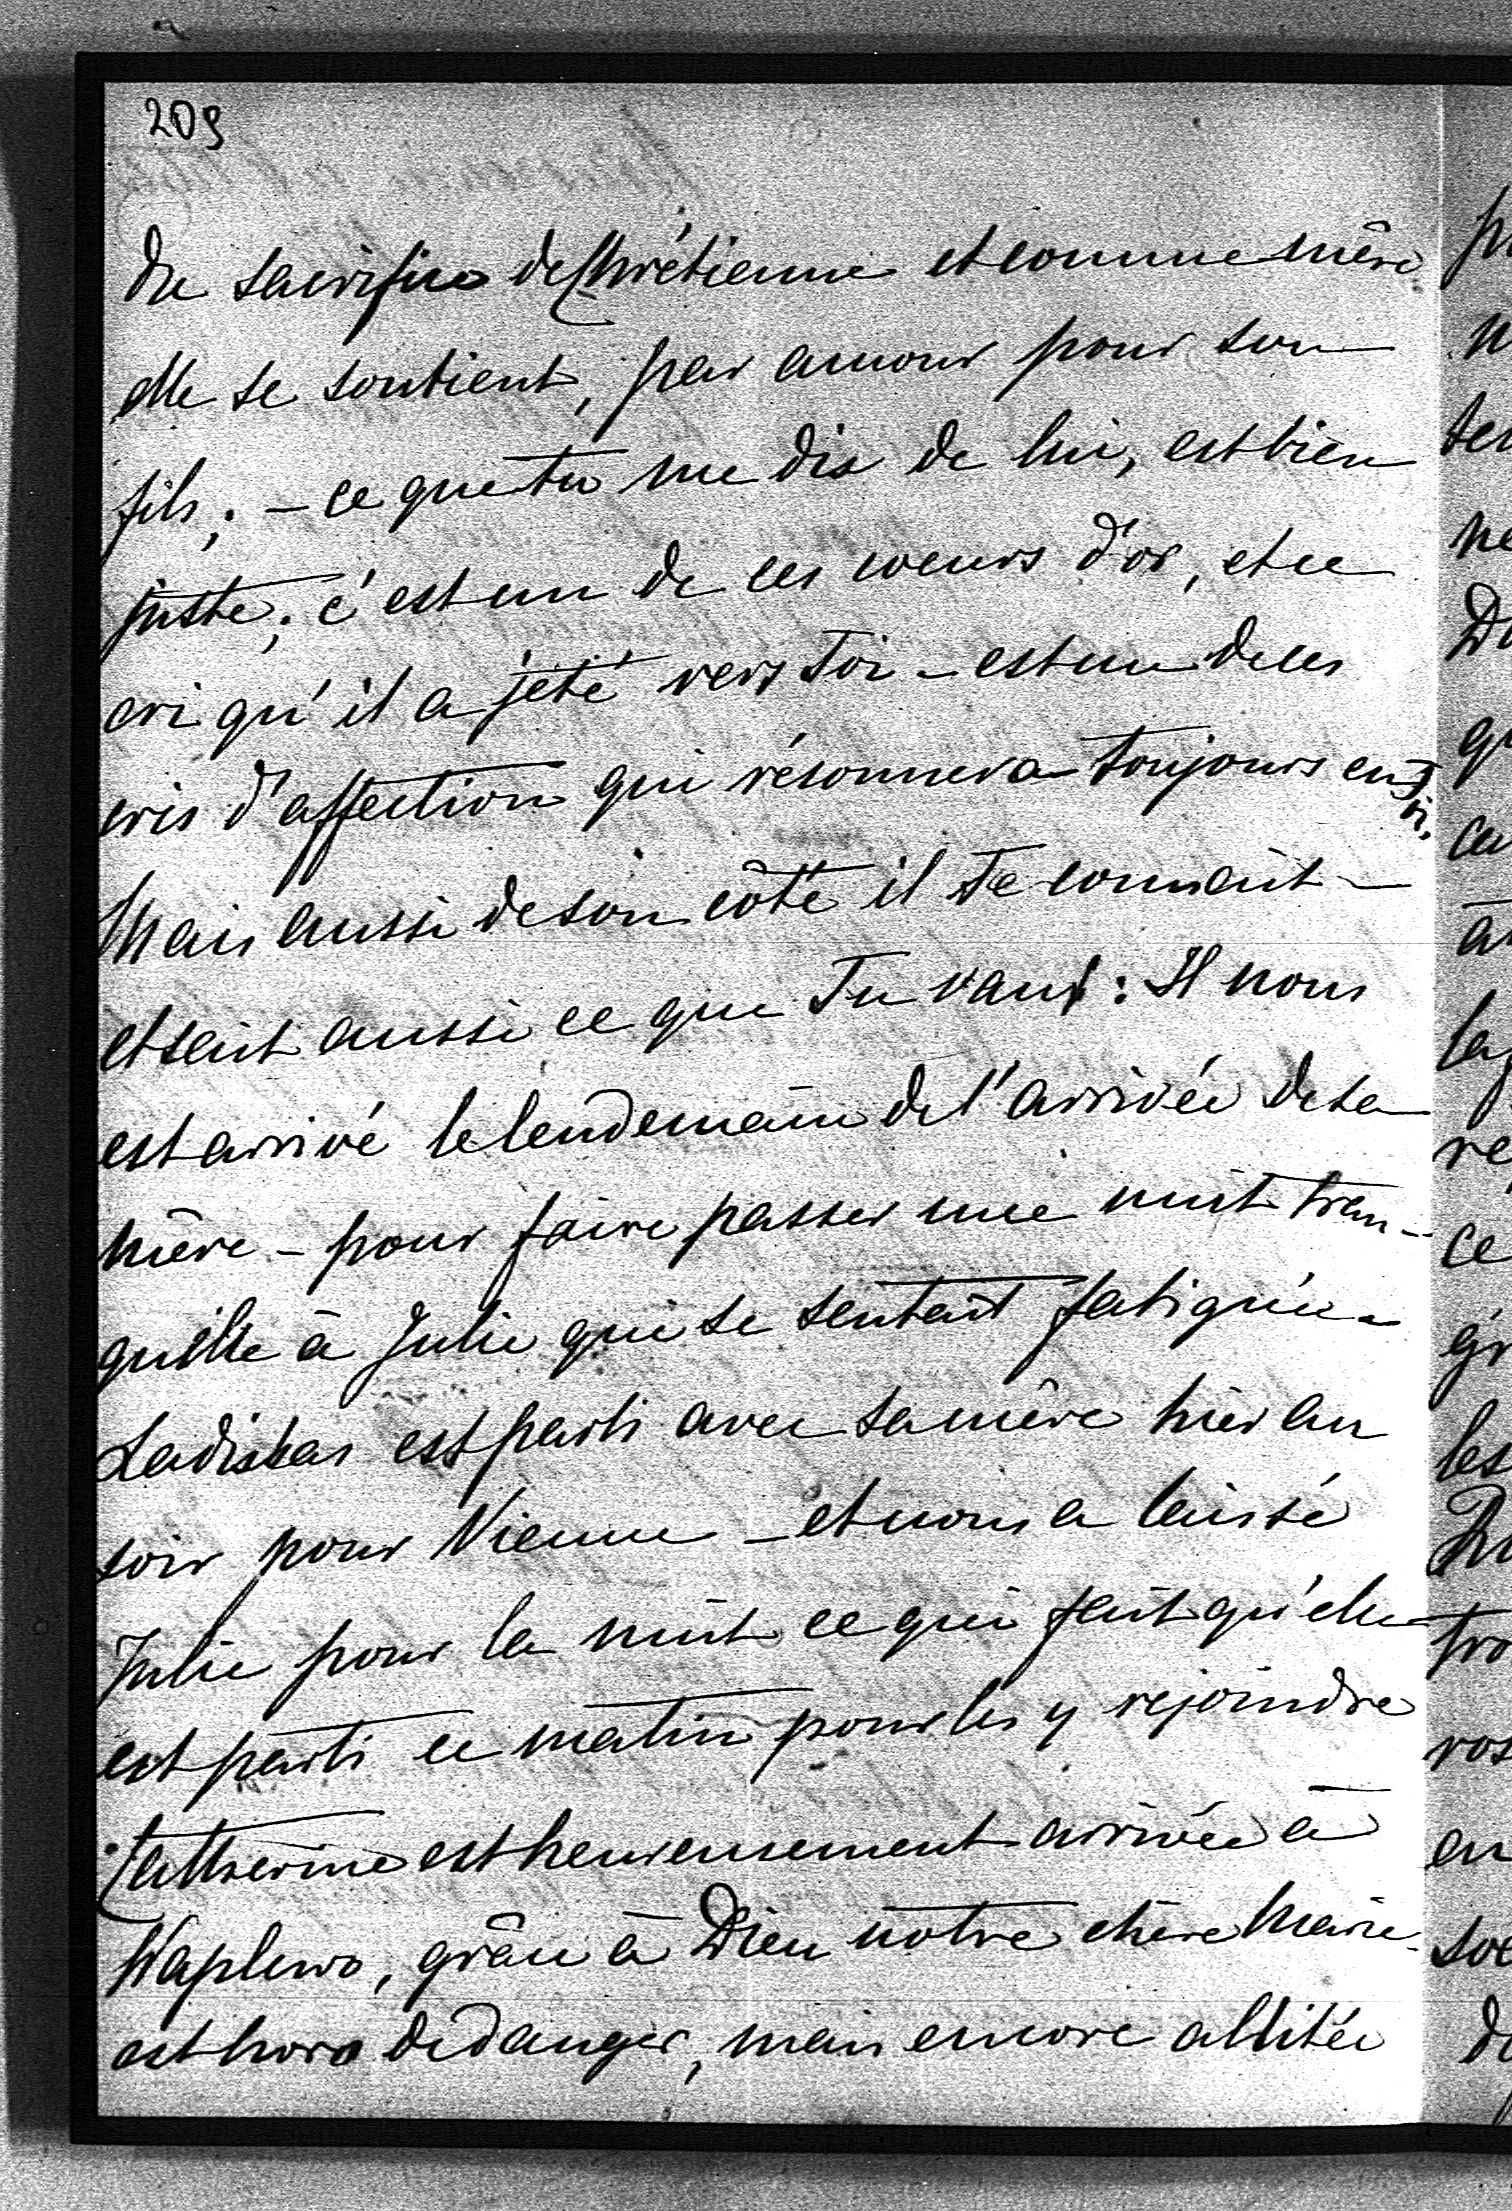 209
du sacrifice de Chrétienne et comme mère
elle se soutient, par amour pour son
fils; – ce que tu me dis de lui, est bien
juste; c'est un de ces coeurs d'or, et ce
cri qu'il a jêté vers Toi – est un de ces
cris d'affection qui résonnera toujours en Toi.
Mais aussi de son côté il Te connait –
et sait aussi ce que Tu vaux: Il nous
est arrivé le lendemain de l'arrivée de sa
mère – pour faire passer une nuit tran-
quille à Julie qui se sentait fatiguée –
Ladislas est parti avec sa mère hier au
soir pour Vienne – et nous a laissé
Julie pour la nuit ce qui fait qu'elle
est parti ce matin pour les y rejoindre
Catherine est heureusement arrivée à
Waplewo, grâce à Dieu notre chère Marie
est hors de danger, mais encore allitée